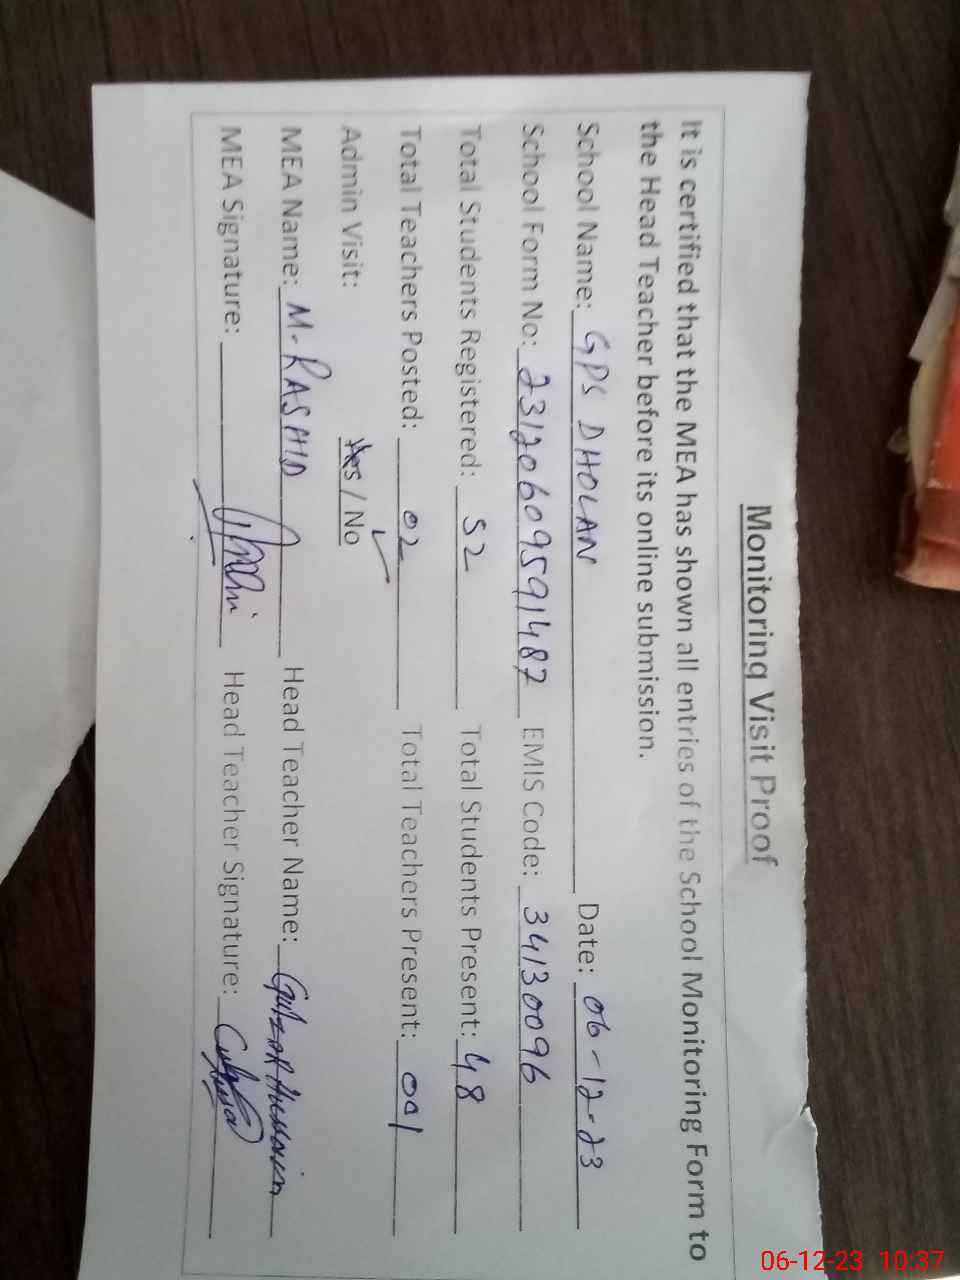 Monitoring Visit Proof
It is certified that the MEA has shown all entries of the School Monitoring Form to
the Head Teacher before its online submission.
School Name: GPS DHOLAN Date: 06-12-23
School Form No: 23120609591487 EMIS Code: 34130096
Total Students Registered: 52 Total Students Present: 48
Total Teachers Posted: 02 Total Teachers Present: 001
Admin Visit: Yes / No ✓
MEA Name: M. RASHID Head Teacher Name: Gulzar Hussain
MEA Signature: Head Teacher Signature:
06-12-23 10:37